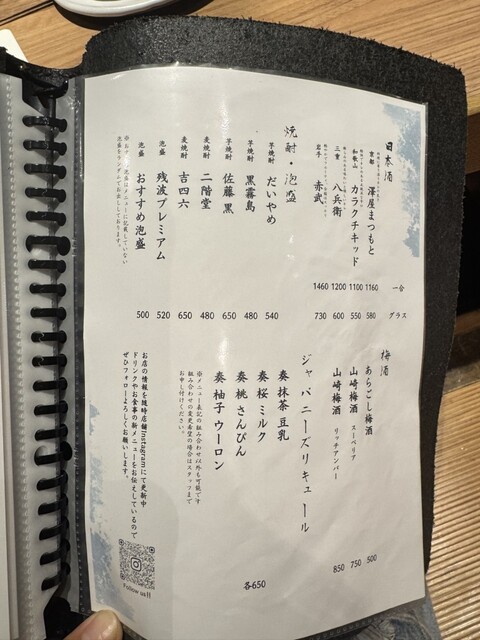 日本酒
一合
グラス
京都 澤屋まつもと 1160 580
和歌山 カラクチキッド 1100 550
三重 八兵衛 1200 600
岩手 赤武 1460 730
焼酎・泡盛
芋焼酎 だいやめ 540
芋焼酎 黒霧島 480
芋焼酎 佐藤 黒 650
麦焼酎 二階堂 480
麦焼酎 吉四六 650
泡盛 残波プレミアム 520
泡盛 おすすめ泡盛 500
梅酒
あらごし梅酒 500
山崎梅酒 スーペリア 750
山崎梅酒 リッチアンバー 850
ジャパニーズリキュール
奏 抹茶豆乳
奏 桜ミルク
奏 桃さんぴん
奏 柚子ウーロン
各650
※メニュー表記の組み合わせ以外も可能です
組み合わせの変更希望の場合はスタッフまで
お申し付けください。
お店の情報を随時店舗Instagramにて更新中
ドリンクやお食事の新メニューをお伝えしているので
ぜひフォローよろしくお願いします。
Follow us!!